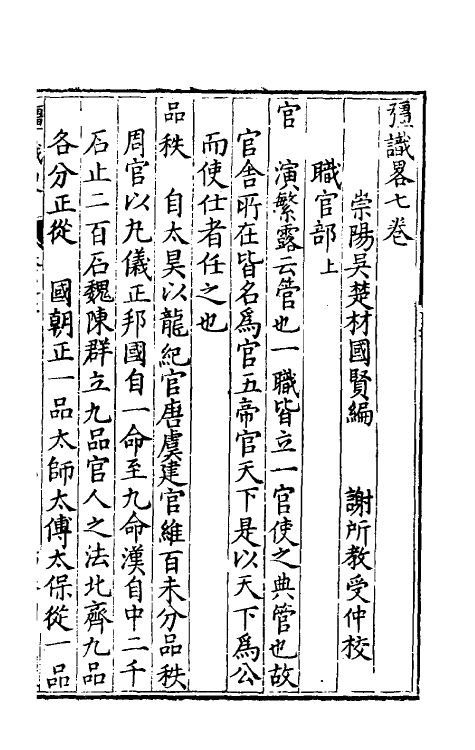 彊識畧七卷
崇陽吳楚材國賢編　謝所教受仲校
職官部上
官　演繁露云管也一職皆立一官使之典管也故
官舍所在皆名爲官五帝官天下是以天下爲公
而使仕者任之也
品秩　自太昊以龍紀官唐虞建官維百未分品秩
周官以九儀正邦國自一命至九命漢自中二千
石止二百石魏陳群立九品官人之法北齊九品
各分正從　國朝正一品太師太傅太保從一品